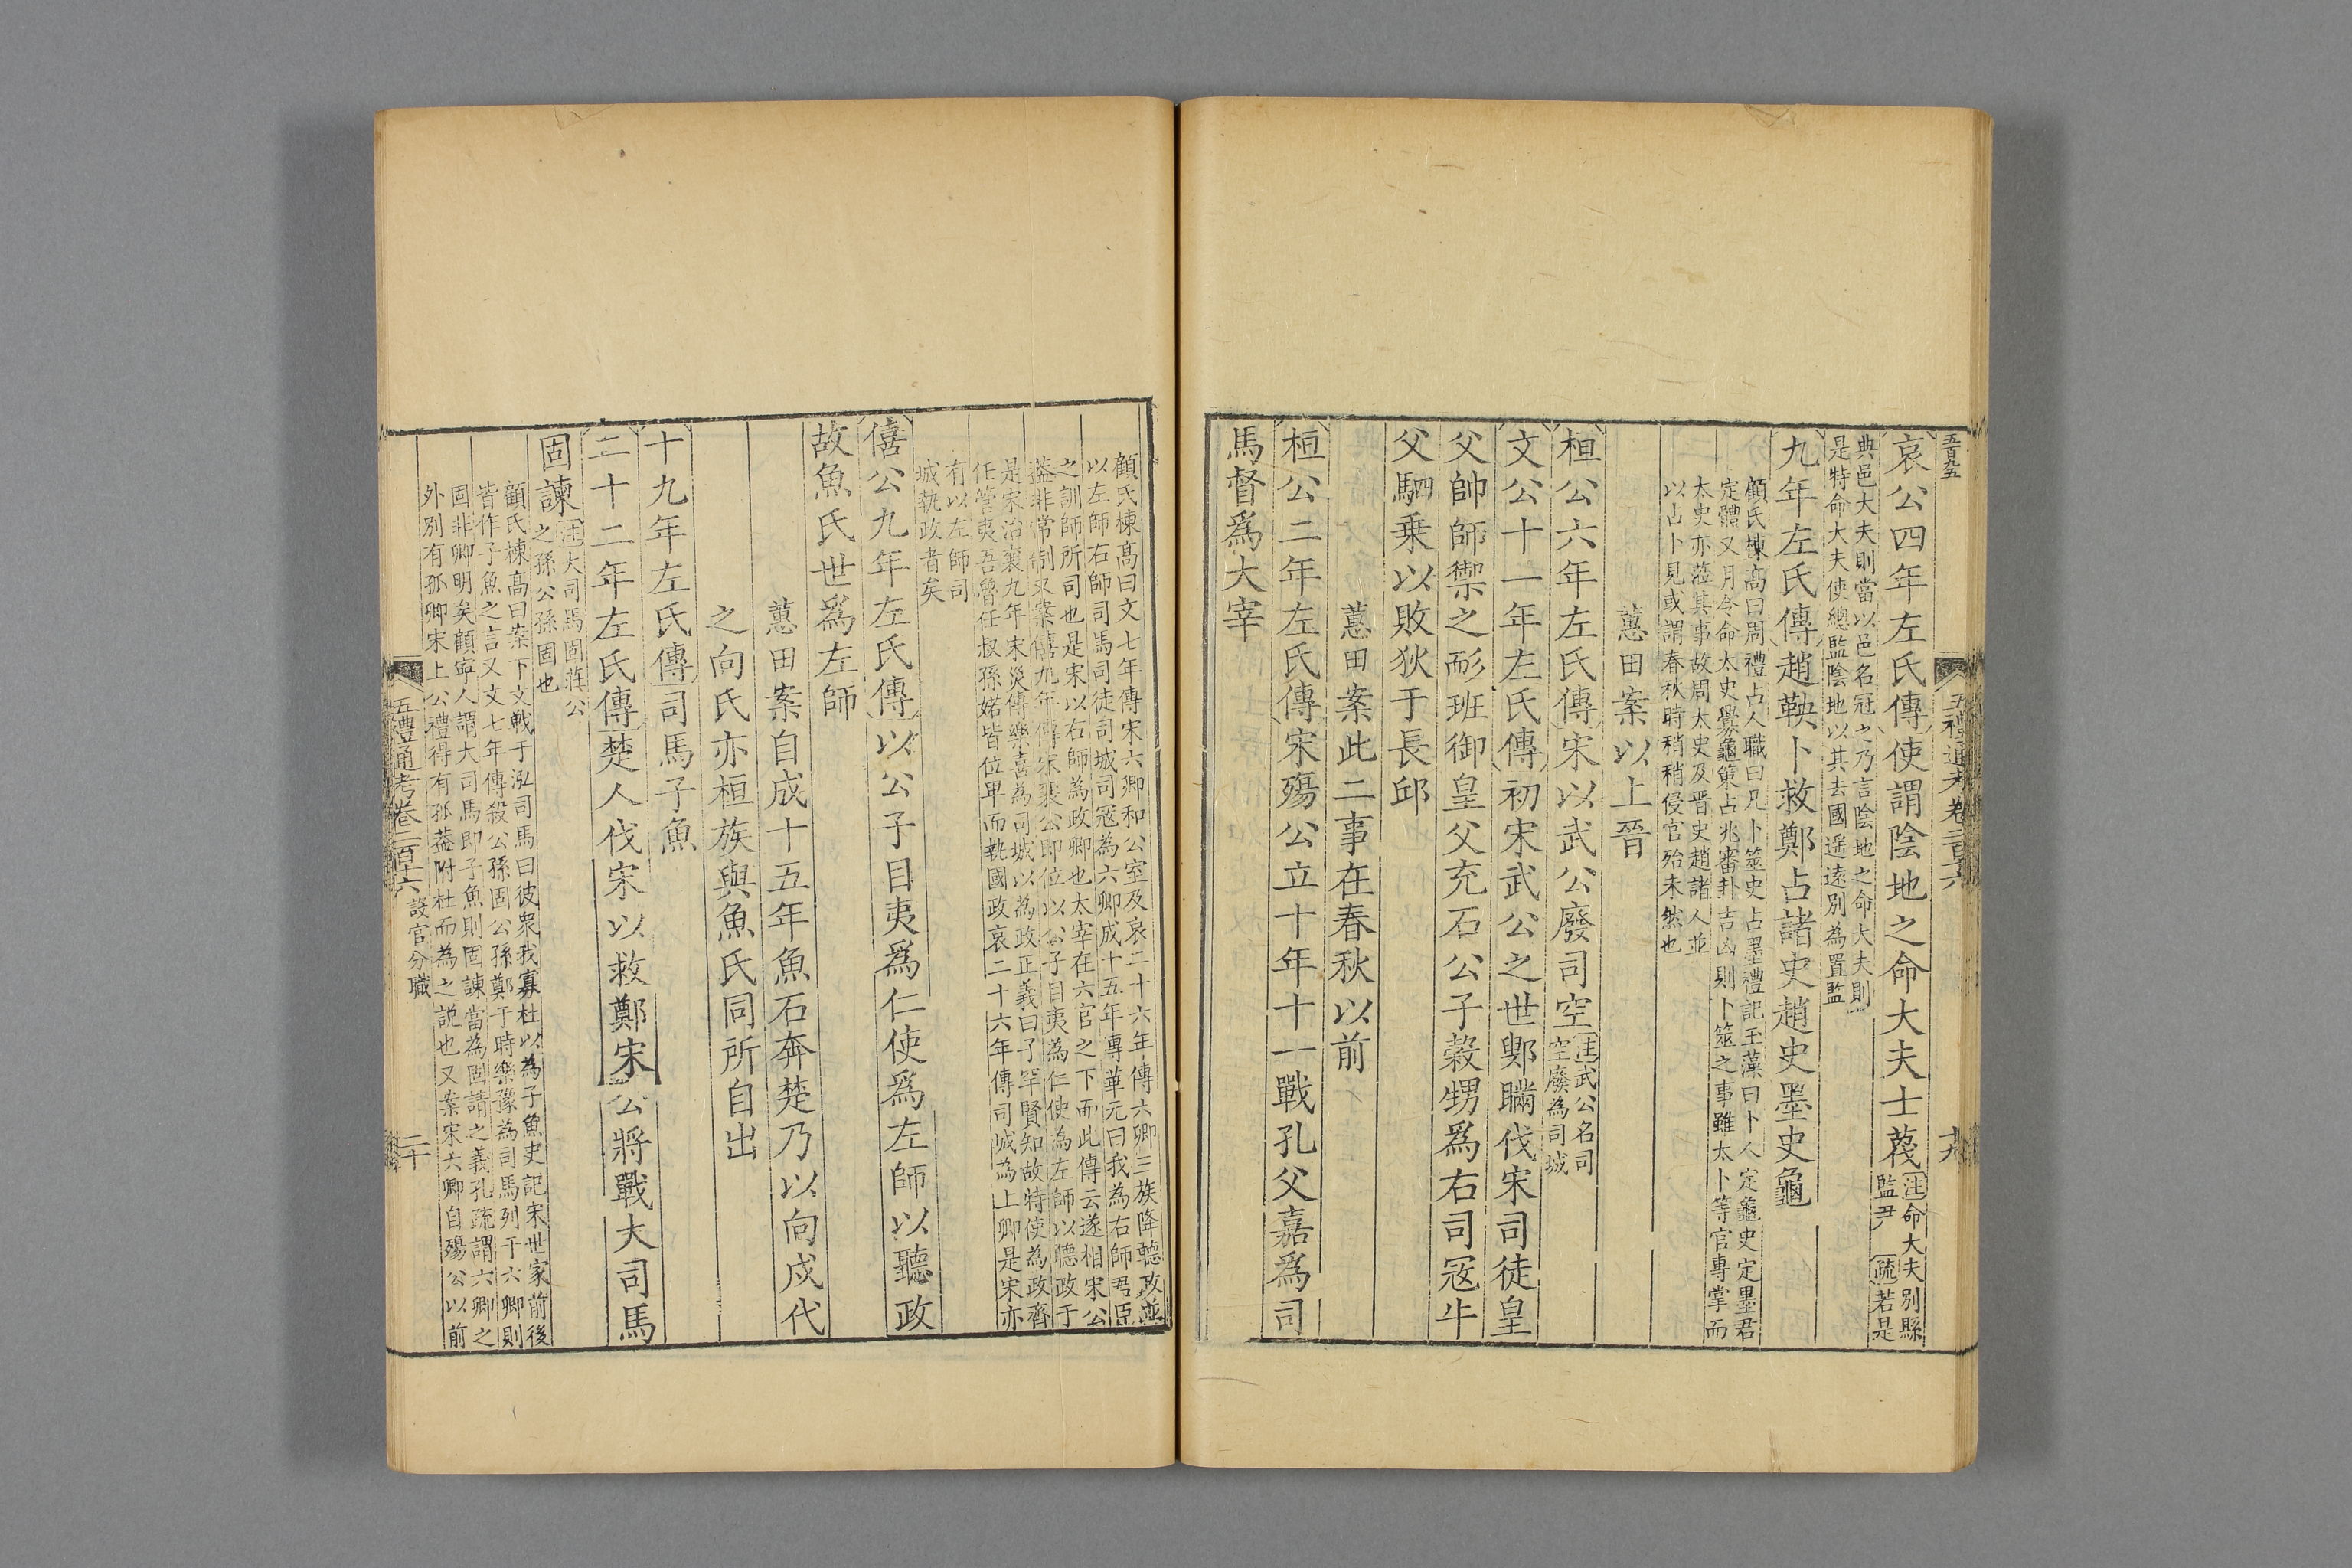 五百九五
五禮通考卷二百十六
十九
哀公四年左氏傳使謂陰地之命大夫士蔑注命大夫別縣
監尹 疏若是
典邑大夫則當以邑名冠之乃言陰地之命大夫則
是特命大夫使總監陰地以其去國遥遠別為置監
九年左氏傳趙鞅卜救鄭占諸史趙史墨史龜
顧氏棟高曰周禮占人職曰凡卜筮史占墨禮記玉藻曰卜人定龜史定墨君
定體又月令命太史釁龜筴占兆審卦吉凶則卜筮之事雖太卜等官專掌而
太史亦蒞其事故周太史及晋史趙諸人並
以占卜見或謂春秋時稍稍侵官殆未然也
蕙田案以上晉
桓公六年左氏傳宋以武公廢司空注武公名司
空廢為司城
文公十一年左氏傳初宋武公之世鄋瞞伐宋司徒皇
父帥師禦之耏班御皇父充石公子榖甥爲右司寇牛
父駟乗以敗狄于長邱
蕙田案此二事在春秋以前
桓公二年左氏傳宋殤公立十年十一戰孔父嘉爲司
馬督爲大宰
顧氏棟高曰文七年傳宋六卿和公室及哀二十六年傳六卿三族降聽政並
以左師右師司馬司徒司城司寇為六卿成十五年傳華元曰我為右師君臣
之訓師所司也是宋以右師為政卿也太宰在六官之下而此傳云遂相宋公
葢非常制又案僖九年傳宋襄公即位以公子目夷為仁使為左師以聽政于
是宋治襄九年宋災傳樂喜為司城以為政正義曰子罕賢知故特使為政齊
任管夷吾魯任叔孫婼皆位卑而執國政哀二十六年傳司城為上卿是宋亦
有以左師司
城執政者矣
僖公九年左氏傳以公子目夷爲仁使爲左師以聽政
故魚氏世爲左師
蕙田案自成十五年魚石奔楚乃以向戍代
之向氏亦桓族與魚氏同所自出
十九年左氏傳司馬子魚
二十二年左氏傳楚人伐宋以救鄭宋公將戰大司馬
固諫注大司馬固莊公
之孫公孫固也
顧氏棟高曰案下文戰于泓司馬曰彼衆我寡杜以為子魚史記宋世家前後
皆作子魚之言又文七年傳殺公孫固公孫鄭于時樂豫為司馬列于六卿則
固非卿明矣顧寧人謂大司馬即子魚則固諫當為固請之義孔疏謂六卿之
外別有孤卿宋上公禮得有孤葢附杜而為之説也又案宋六卿自殤公以前
五禮通考卷二百十六 設官分職
二十